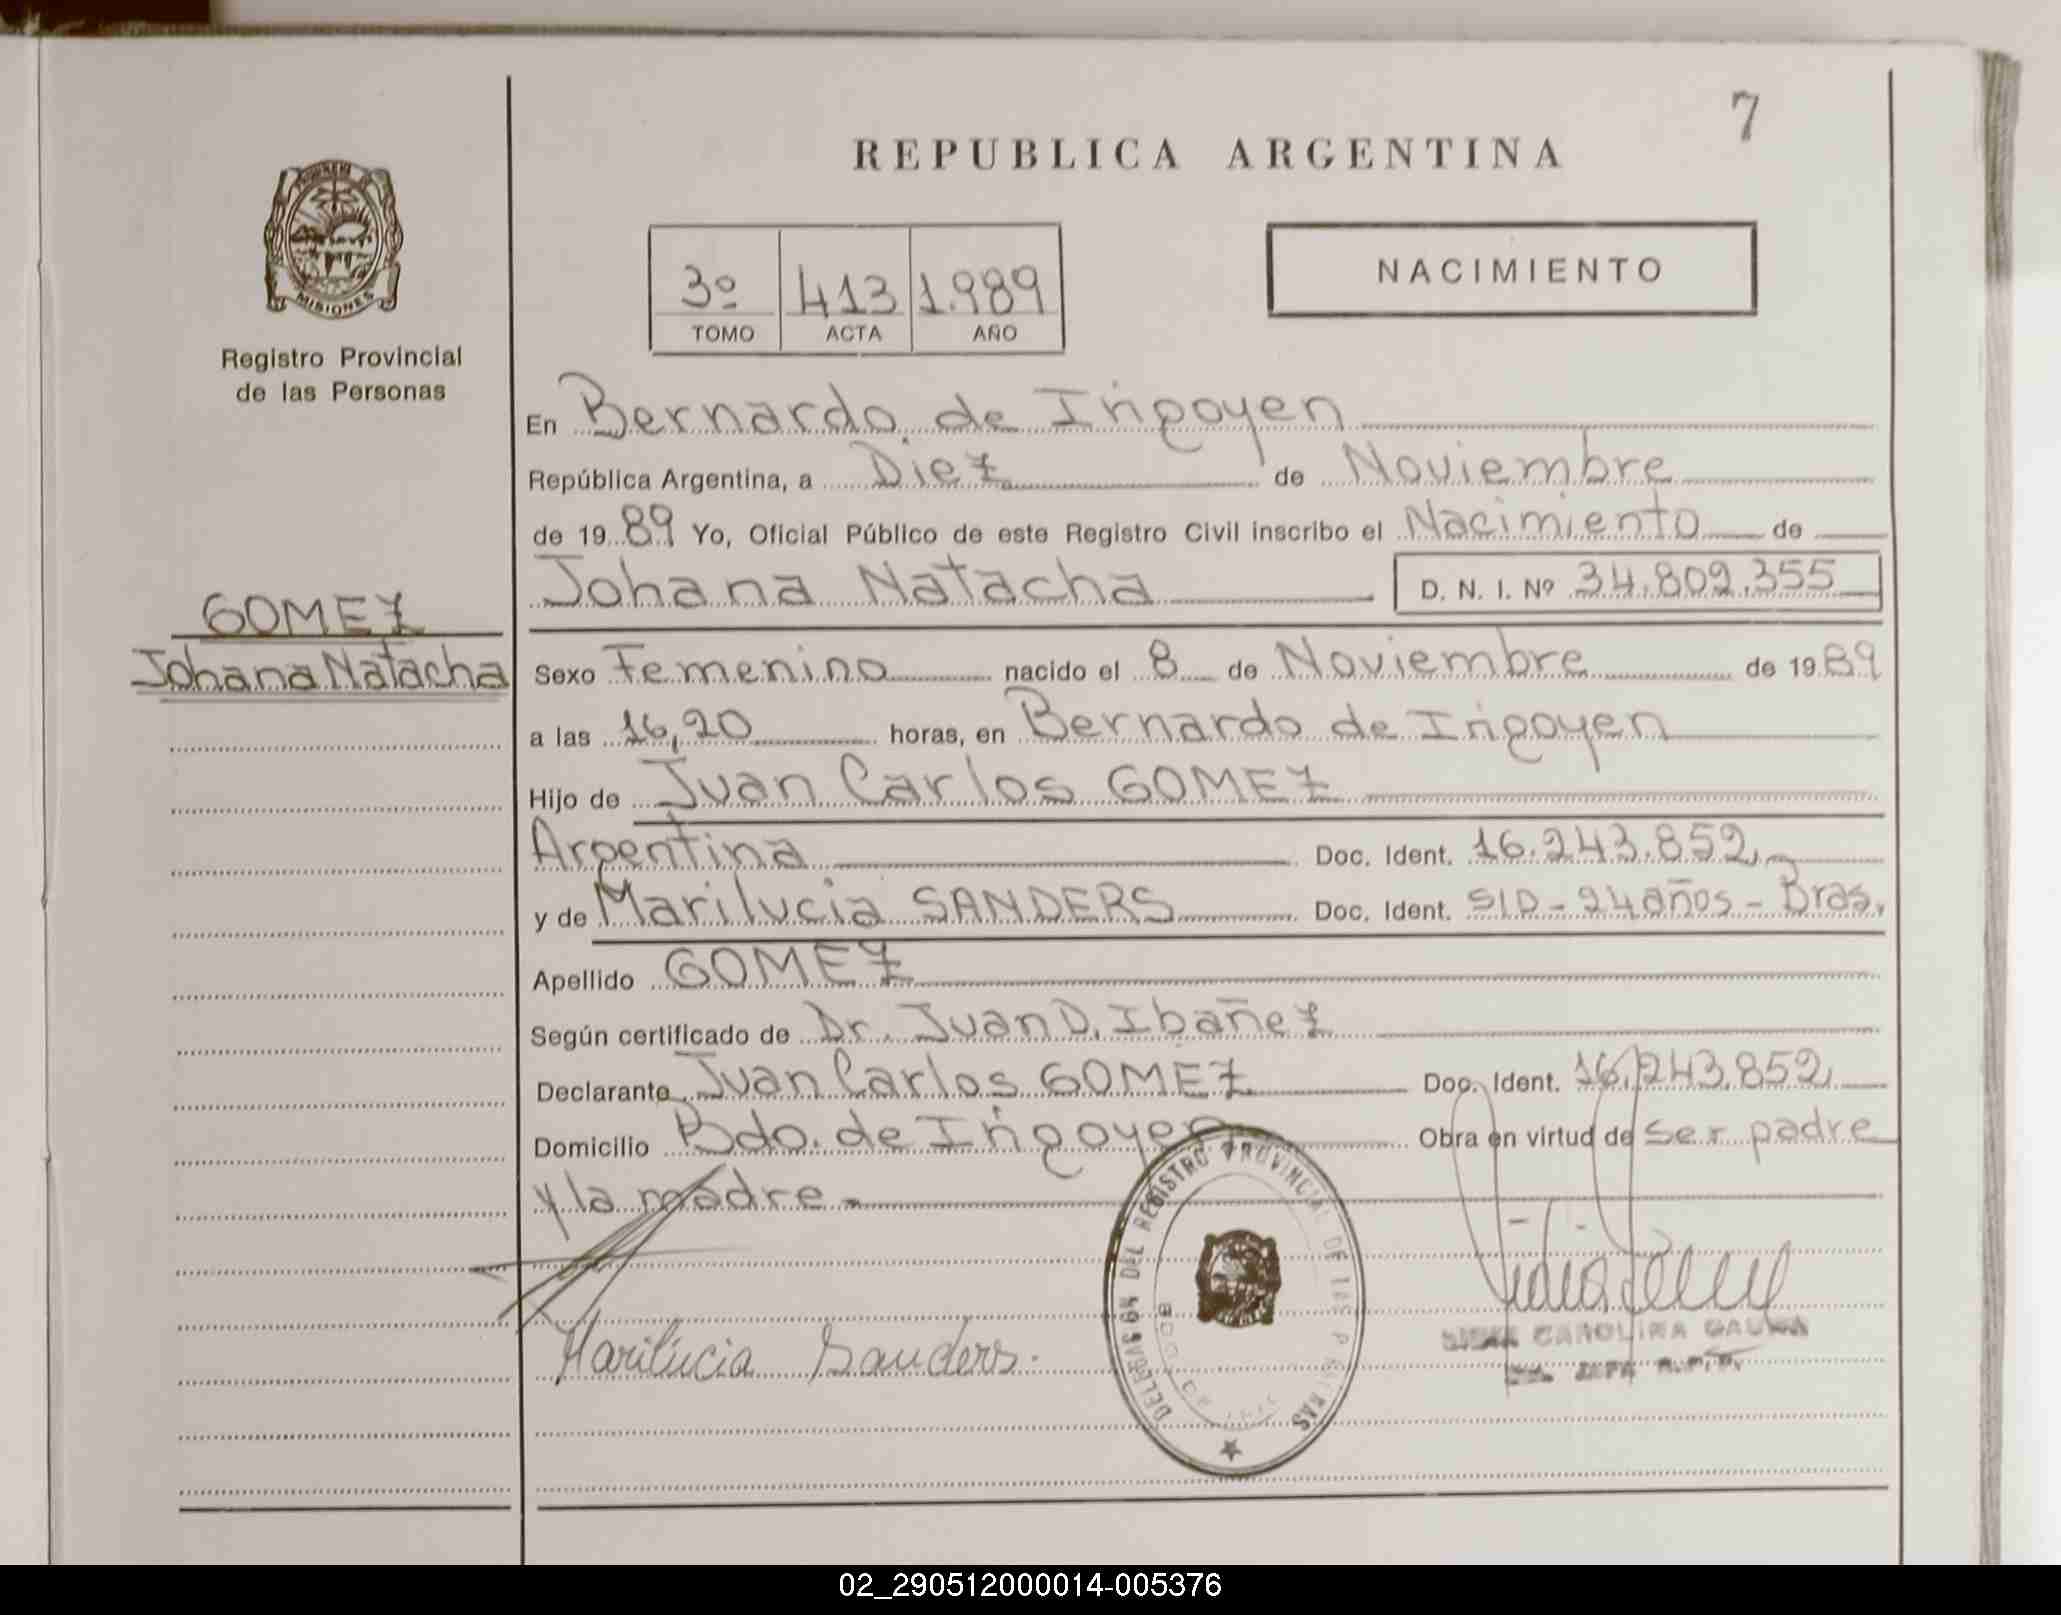 7
REPUBLICA ARGENTINA
MISIONES
3º 413 1.989
TOMO ACTA AÑO
NACIMIENTO
Registro Provincial
de las Personas
En Bernardo de Irigoyen
República Argentina, a Diez de Noviembre
de 19 89 Yo, Oficial Público de este Registro Civil inscribo el Nacimiento de
Johana Natacha D. N. I. Nº 34.802.355
GOMEZ
Johana Natacha
Sexo Femenino nacido el 8 de Noviembre de 19 89
a las 16,20 horas, en Bernardo de Irigoyen
Hijo de Juan Carlos GOMEZ
Argentina Doc. Ident. 16.243.852
y de Marilucia SANDERS Doc. Ident. SID - 24 años - Bras.
Apellido GOMEZ
Según certificado de Dr. Juan D. Ibañez
Declarante Juan Carlos GOMEZ Doc. Ident. 16.243.852
Domicilio Bdo. de Irigoyen Obra en virtud de ser padre
y la madre
Marilucia Sanders.
DELEGACION DEL REGISTRO PROVINCIAL DE LAS PERSONAS
CAROLINA
02_290512000014-005376